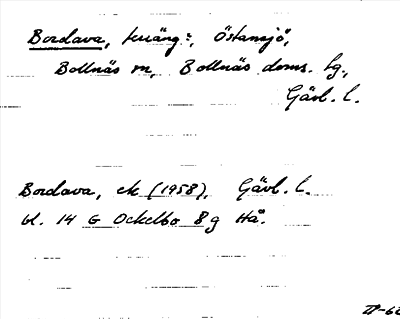 Bordava, terräng:, Östansjö,
Bollnäs sn, Bollnäs doms. hg.,
Gävl. l.
Bordava, ek (1958), Gävl. l.
bl. 14 G Ockelbo 8g Hå.